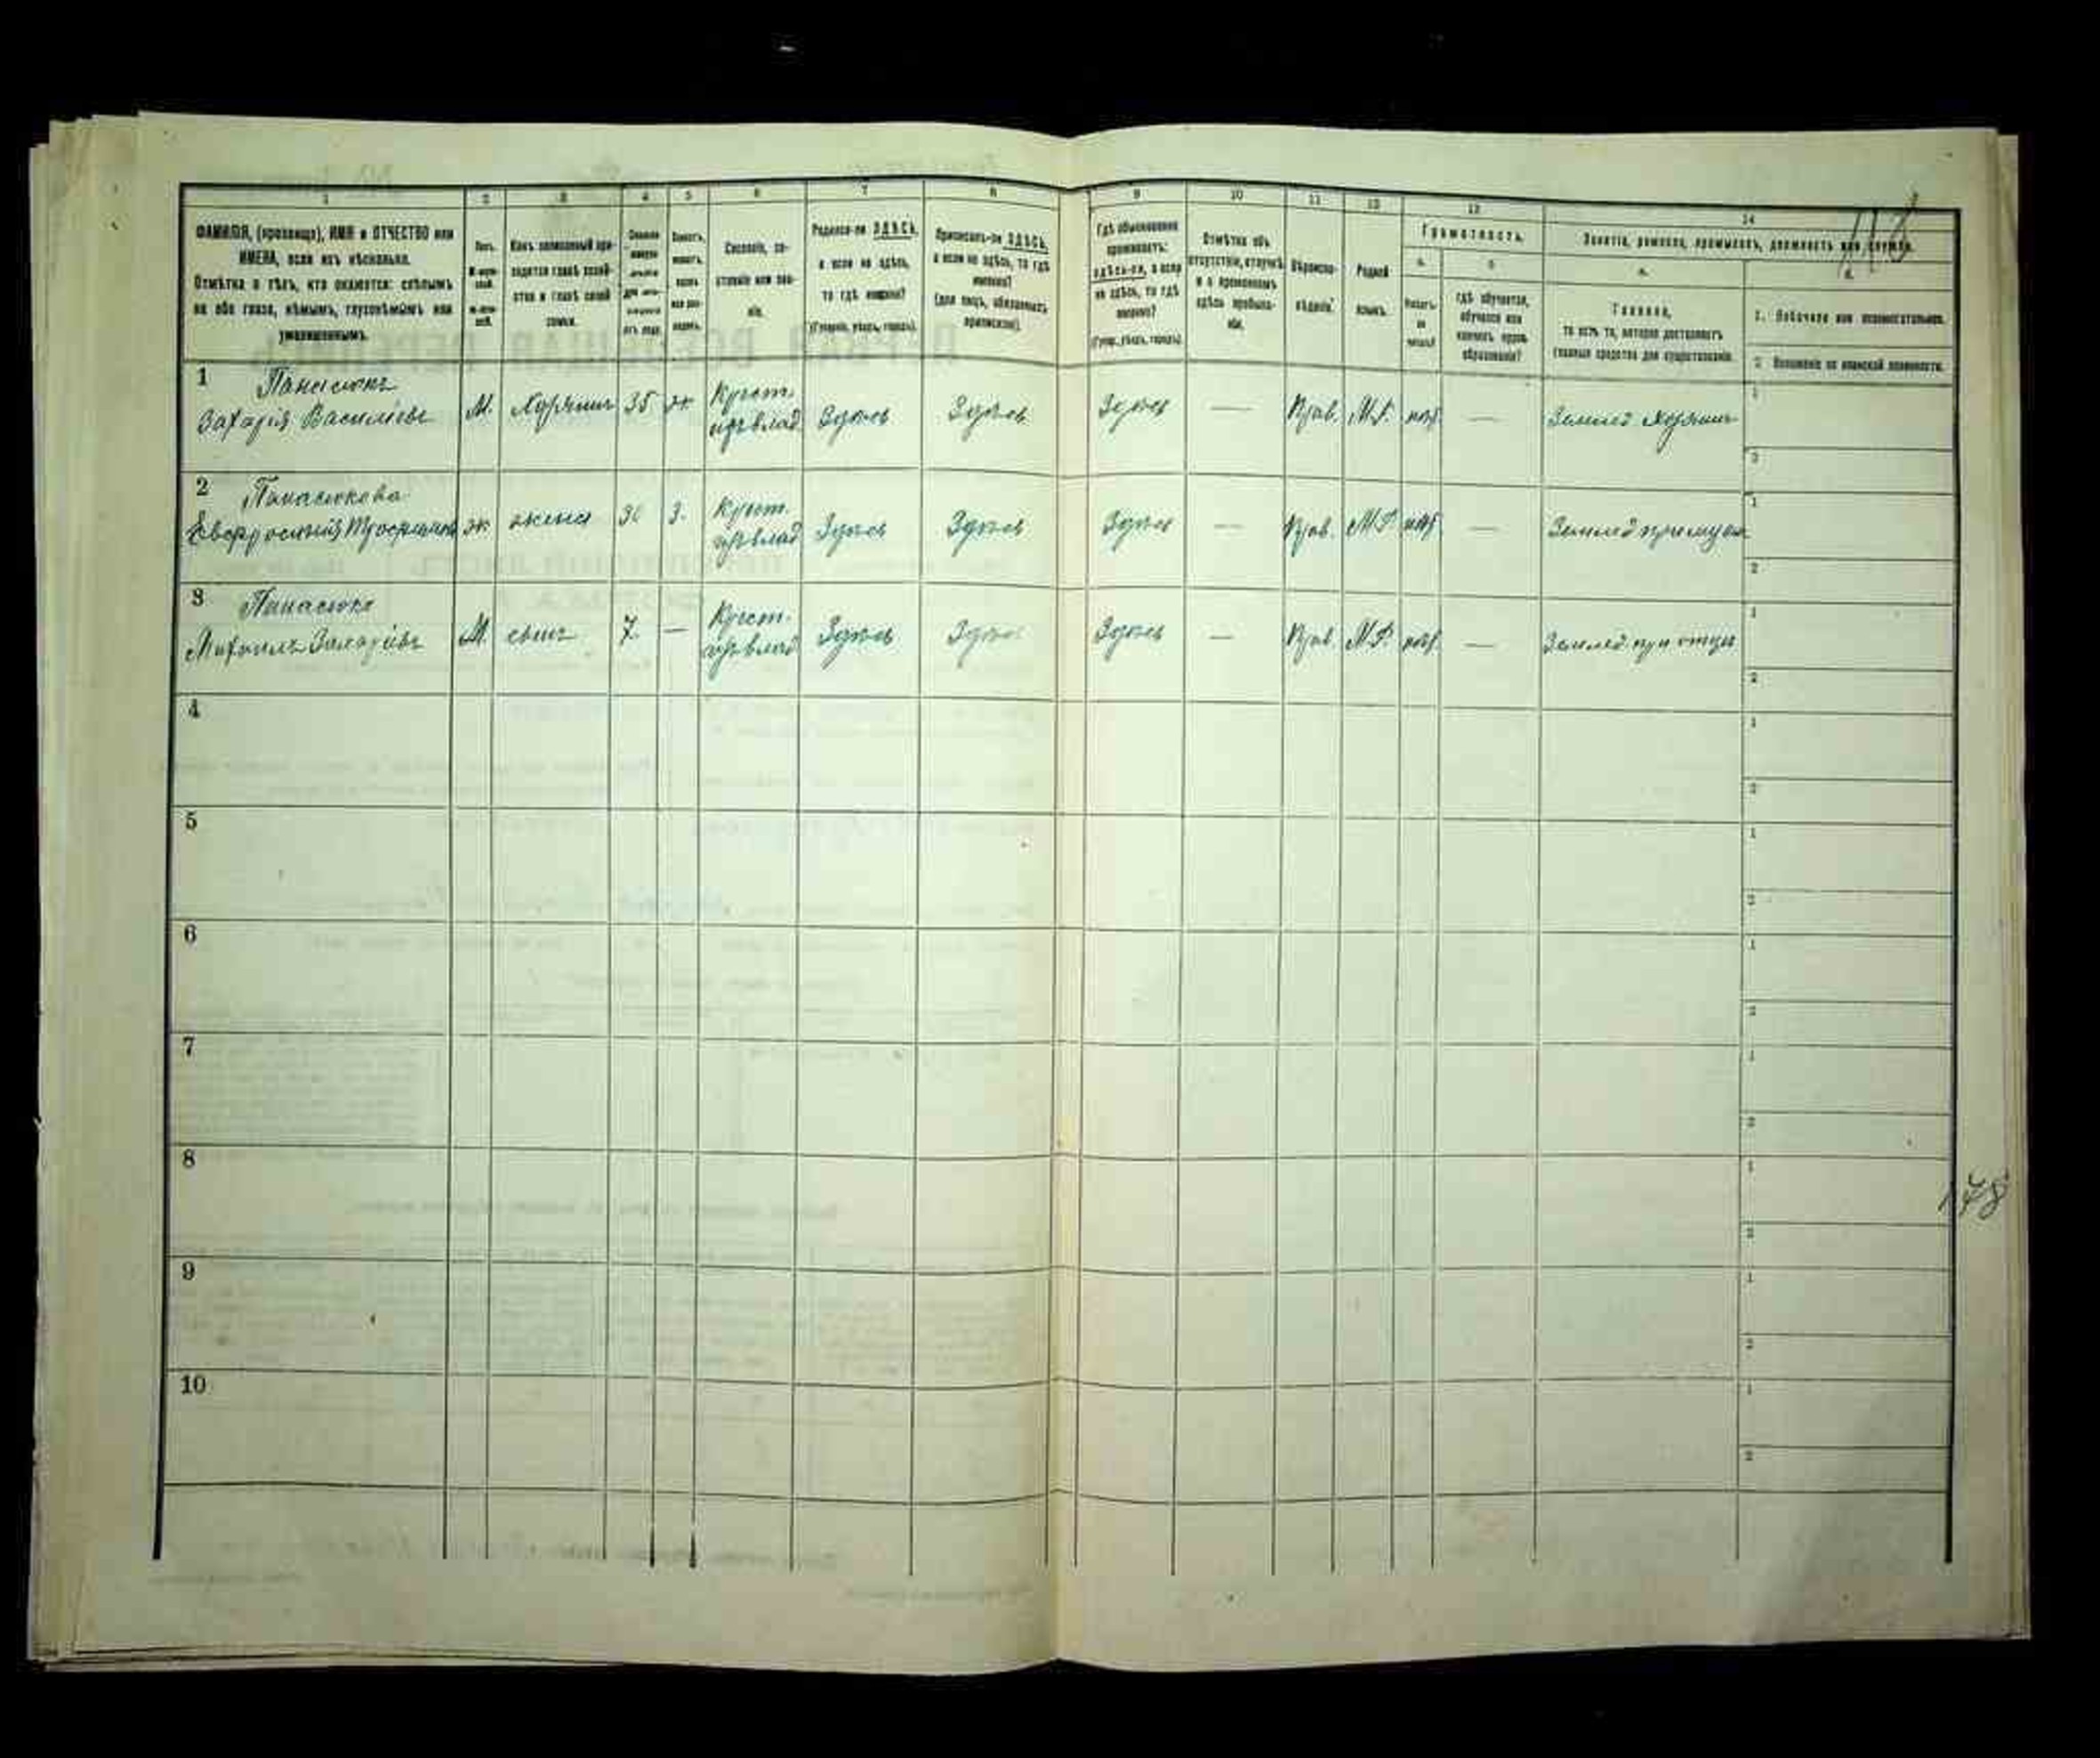 1 2 3 4 5 6 7 8 9 10 11 12 13 14
118
ФАМИЛІЯ, (прозвище), ИМЯ и ОТЧЕСТВО или
ИМЕНА, если ихъ нѣсколько.
Отмѣтка о тѣхъ, кто окажется: слѣпымъ
на оба глаза, нѣмымъ, глухонѣмымъ или
умалишеннымъ.
Полъ.
Какъ записанный при-
ходится главѣ хозяй-
ства и главѣ своей
семьи.
Сословіе, со-
стояніе или зва-
ніе.
Родился-ли ЗДѢСЬ,
а если не здѣсь,
то гдѣ именно?
(Губернія, уѣздъ, городъ).
Приписанъ-ли ЗДѢСЬ,
а если не здѣсь, то гдѣ
именно?
(для лицъ, обязанныхъ
припиской).
Гдѣ обыкновенно
проживаетъ:
здѣсь-ли, а если
не здѣсь, то гдѣ
именно?
(Губер., уѣздъ, городъ).
Отмѣтка объ
отсутствіи, отлучкѣ
и о временномъ
здѣсь пребыва-
ніи.
Вѣроиспо-
вѣданіе.
Родной
языкъ.
Грамотность.
а. б.
гдѣ обучается,
обучался или
кончилъ курсъ
образованія?
Занятіе, ремесло, промыселъ, должность или служба.
а.
Главное,
то есть то, которое доставляетъ
главныя средства для существованія.
1. Побочное или вспомогательное.
2. Положеніе по воинской повинности.
1 Панасюкъ
Захарія Васильевъ М. Хозяинъ 35 ж Крест. Здѣсь Здѣсь Здѣсь — Прав. М.Р. — Землед. хозяинъ
2 Панасюкова
Евфросинія ж жена 3. Крест. Здѣсь Здѣсь Здѣсь — Прав. М.Р. — Землед. при мужѣ
3 Панасюкъ
Михаилъ Захаріевъ М. сынъ 7 — Крест. Здѣсь Здѣсь Здѣсь — Прав. М.Р. — Землед. при отцѣ
4
5
6
7
8
9
10
178